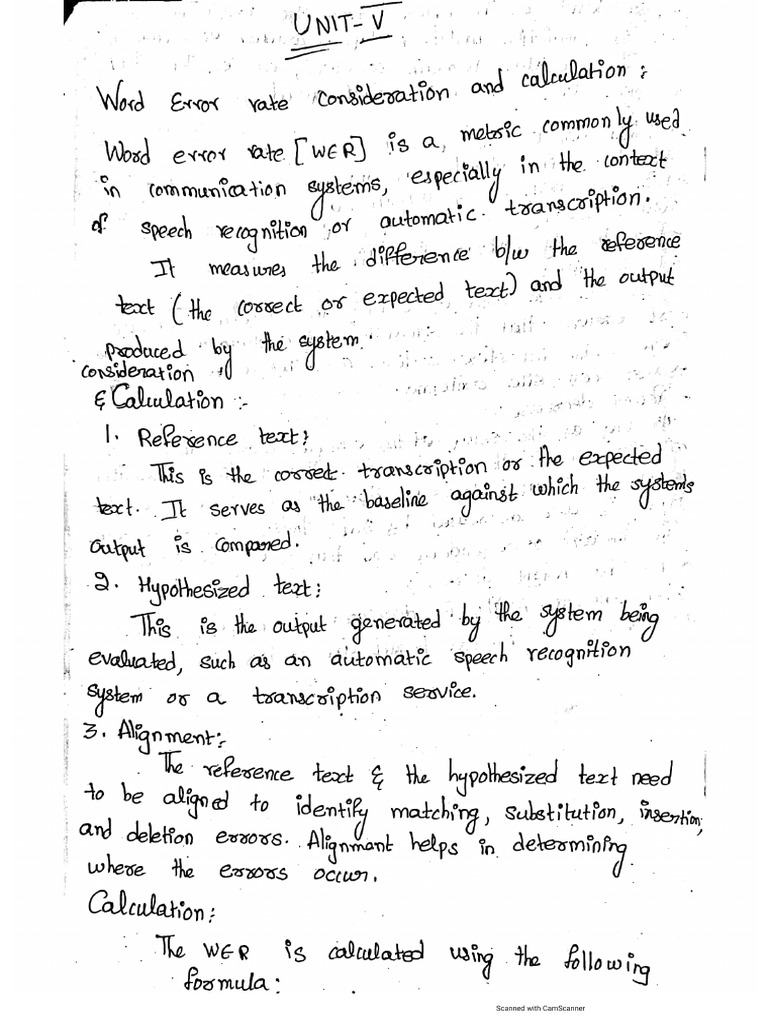 UNIT-V
Word Error rate consideration and calculation:
Word error rate [WER] is a metric commonly used
in communication systems, especially in the context
of speech recognition or automatic transcription.
It measures the difference b/w the reference
text (the correct or expected text) and the output
produced by the system.
consideration
& Calculation :-
1. Reference text:
This is the correct transcription or the expected
text. It serves as the baseline against which the systems
output is compared.
2. Hypothesized text:
This is the output generated by the system being
evaluated, such as an automatic speech recognition
system or a transcription service.
3. Alignment:-
The reference text & the hypothesized text need
to be aligned to identify matching, substitution, insertion,
and deletion errors. Alignment helps in determining
where the errors occur.
Calculation:
The WER is calculated using the following
formula:
Scanned with CamScanner